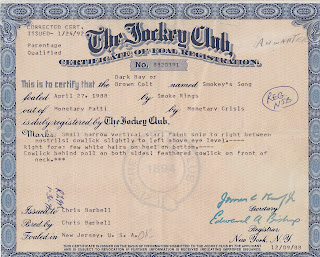 CORRECTED CERT.
ISSUED- 1/24/92
Parentage
Qualified
The Jockey Club
CERTIFICATE OF FOAL REGISTRATION
No.
Dark Bay or
This is to certify that the Brown Colt named Smokey's Song
foaled April 27, 1988 by Smoke Rings
out of Monetary Patti by Monetary Crisis
is duly registered by The Jockey Club.
Marks: Small narrow vertical star; faint snip to right between
nostrils; cowlick slightly to left above eye level.----
Right fore: few white hairs on heel on action.----
Cowlick behind poll on both sides; feathered cowlick on front of
neck.***
Issued to Chris Barbell
Bred by Chris Barbell
Foaled in New Jersey, U. S. A.
Secretary
Registrar
New York, N.Y.
12/09/88